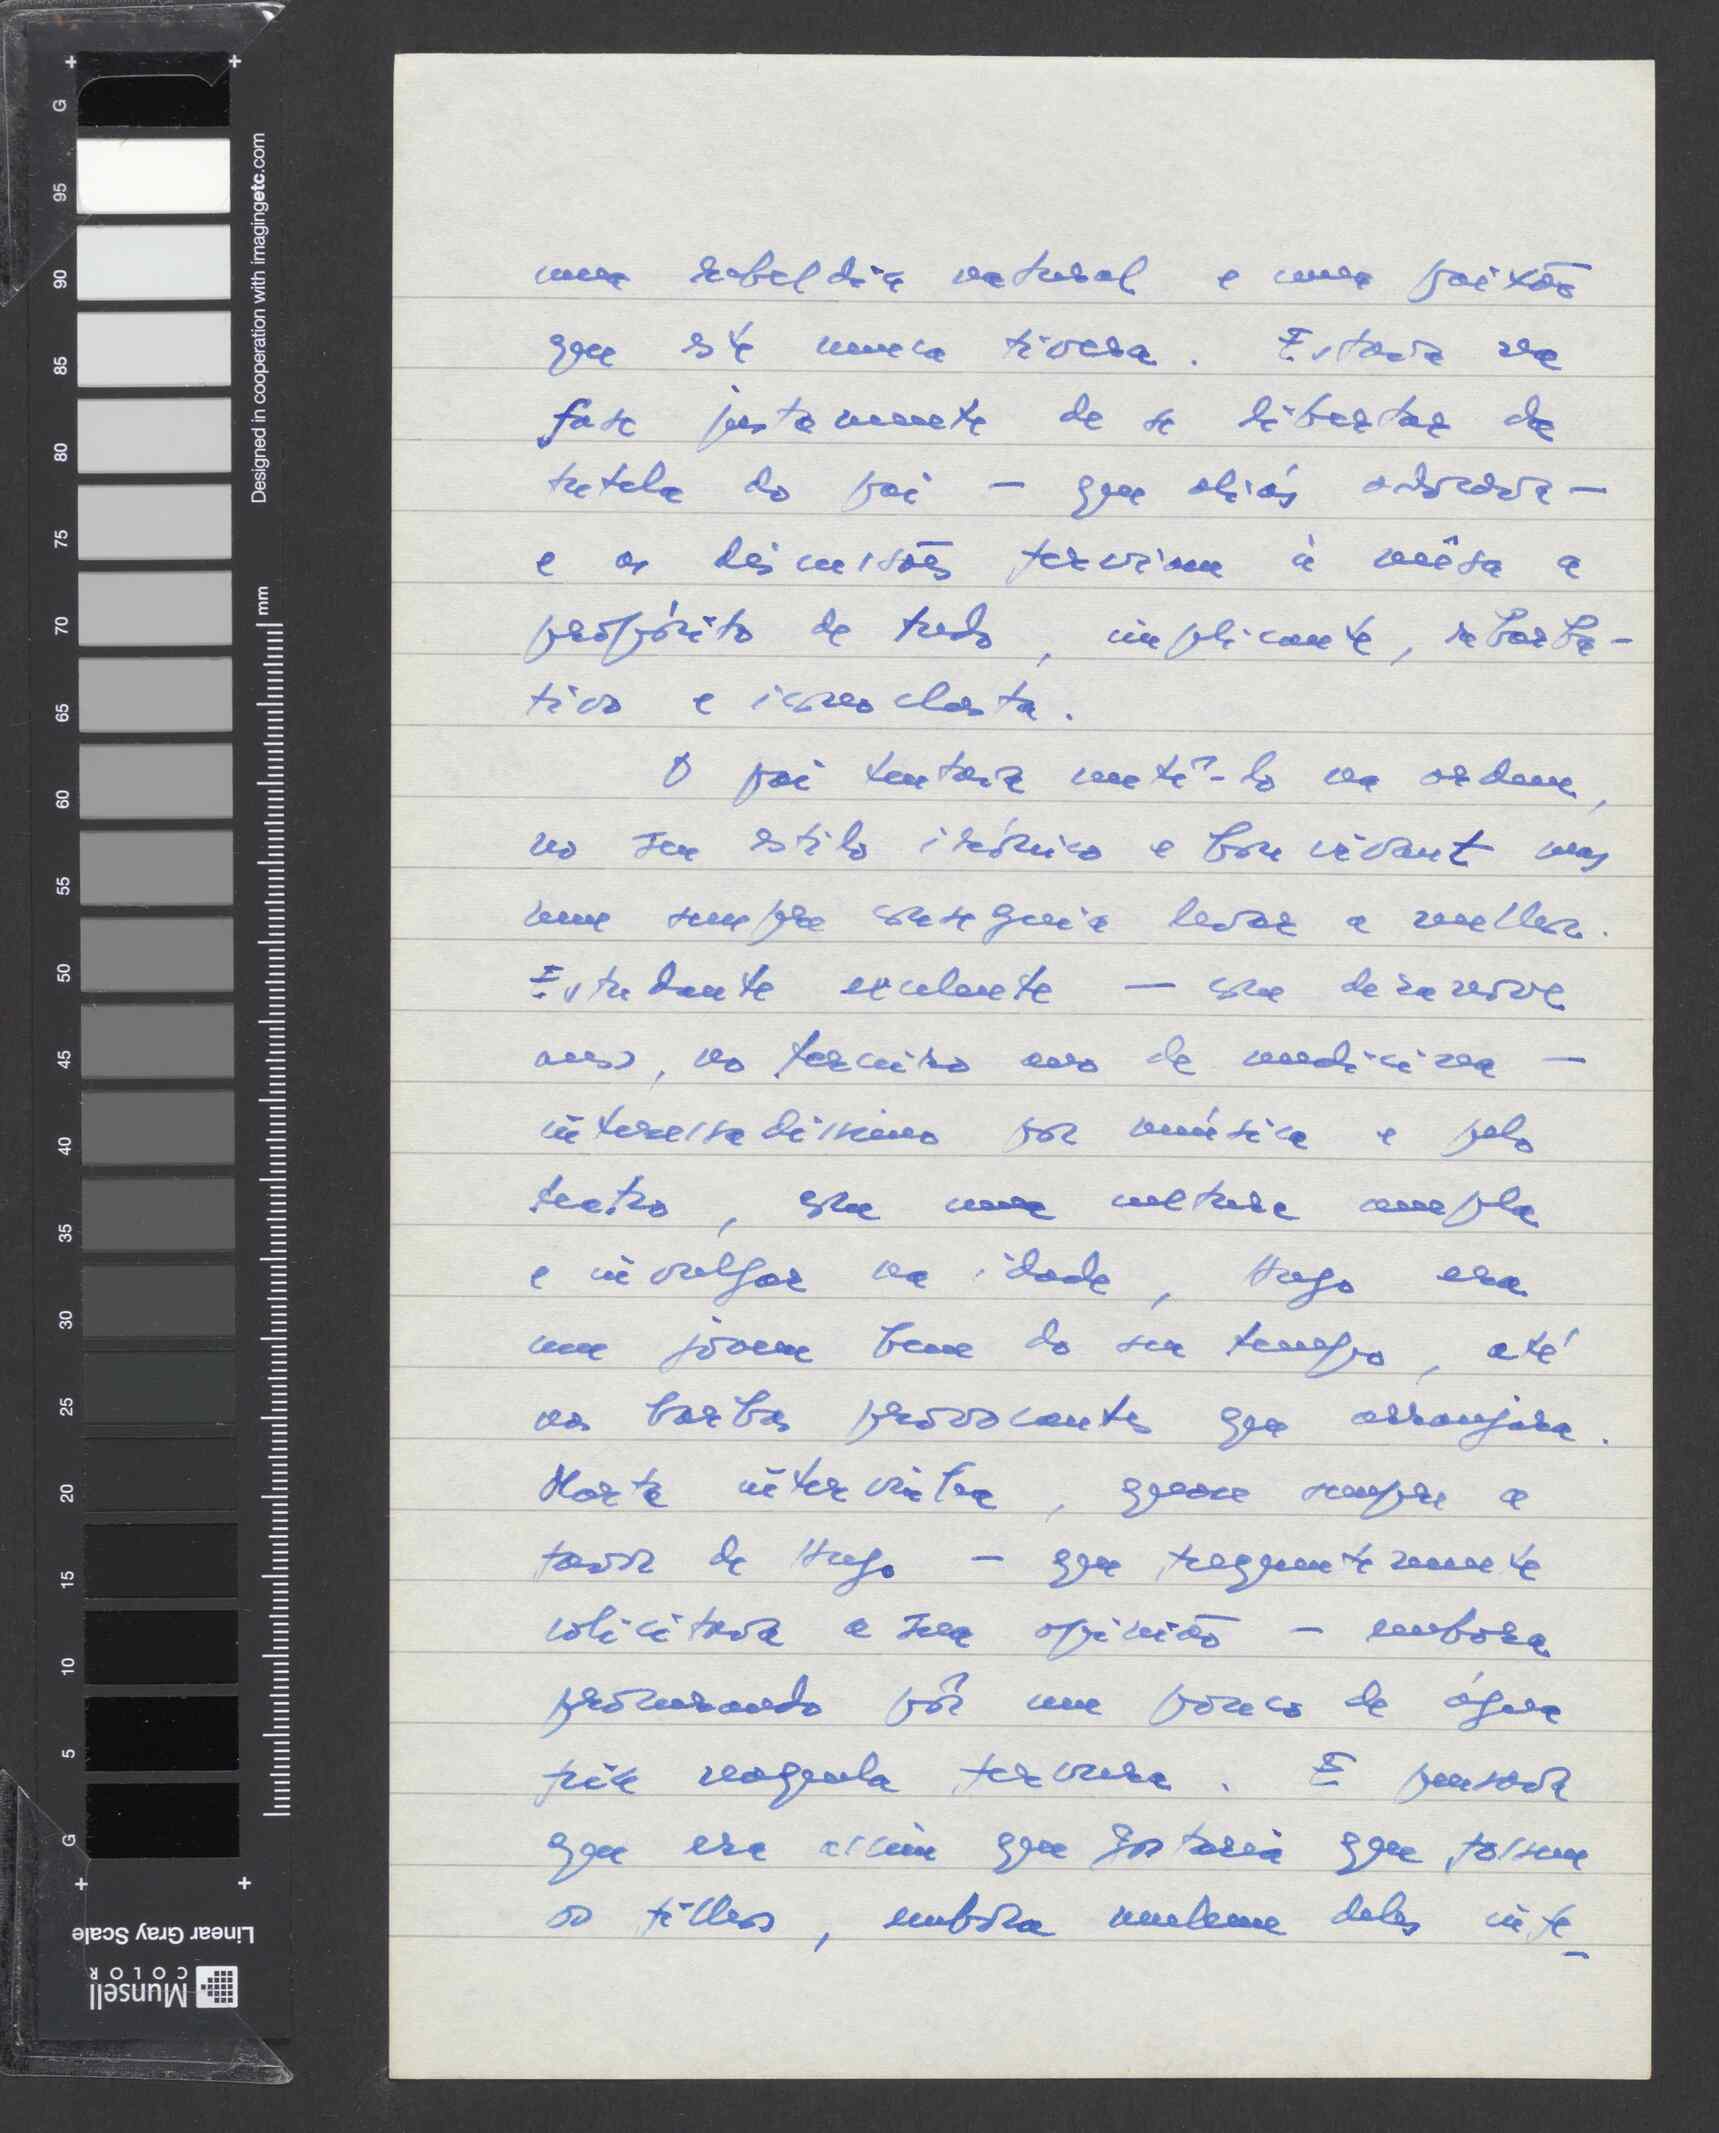 uma rebeldia natural e uma paixão
que este nunca tivera. Estava na
fase justamente de se libertar da
tutela do pai — que aliás adorava —
e as discussões ferviam à mêsa a
propósito de tudo, implicante, rebarba-
tivo e iconoclasta.
O pai tentava metê-lo na ordem,
no seu estilo irónico e bon vivant mas
nem sempre conseguia levar a melhor.
Estudante excelente — com dezanove
anos, no terceiro ano de medicina —
interessadíssimo por música e pelo
teatro, com uma cultura ampla
e invulgar na idade, Hugo era
um jovem bem do seu tempo, até
nas barbas provocantes que arranjara.
Marta intervinha, quase sempre a
favor de Hugo — que frequentemente
solicitava a sua opinião — embora
procurando pôr um pouco de água
fria naquela fervura. E pensava
que era assim que gostaria que fossem
os filhos, embora nenhum deles inte-
G 95 90 85 80 75 70 65 60 55 50 45 40 35 30 25 20 15 10 5 G
Designed in cooperation with imagingetc.com
mm
Linear Gray Scale
Munsell
COLOR